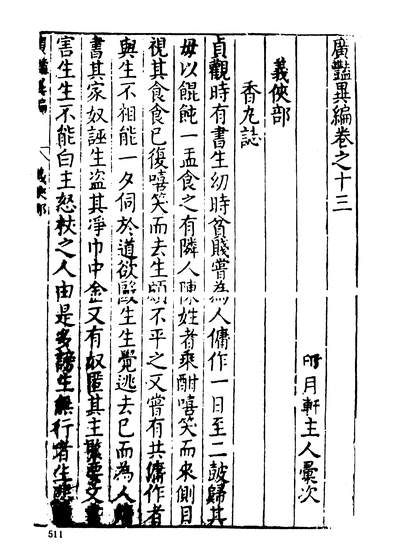 廣豔異編卷之十三
印月軒主人彙次
義俠部
香丸誌
貞觀時有書生幼時貧賤嘗為人傭作一日至二鼓歸其
毋以餛飩一盂食之有隣人陳姓者乘酣嘻笑而來側目
視其食食已復嘻笑而去生頗不平之又嘗有共傭作者
與生不相能一夕伺於道欲毆生生覺逃去已而為人傭
書其家奴誣生盜其淨巾中金又有奴匿其主緊要文書
害生生不能白主怒杖之人由是多謗生無行者生
廣豔異編 義俠部
511